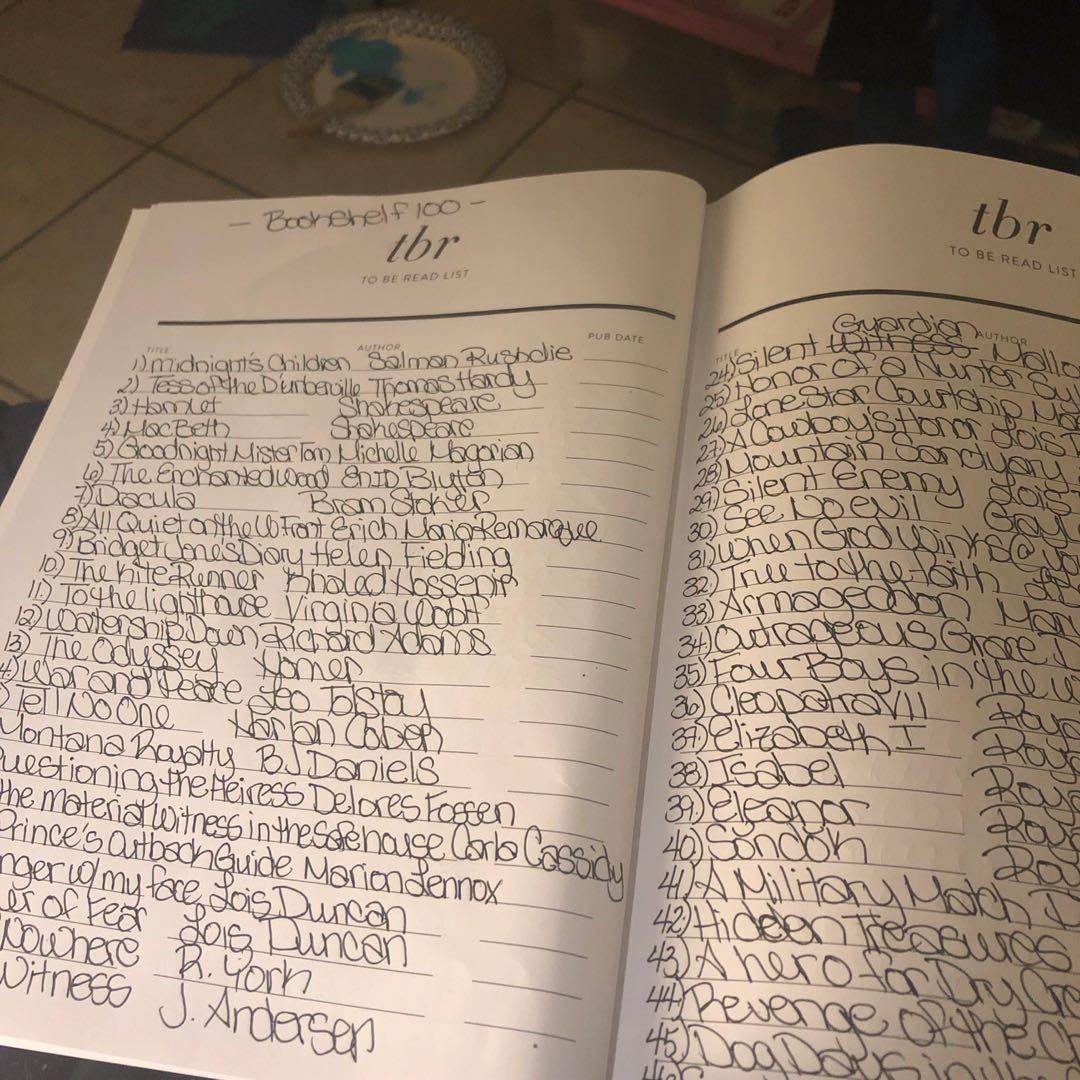 - Bookshelf 100 -
tbr
TO BE READ LIST
TITLE AUTHOR PUB DATE
1) Midnight's Children Salman Rushdie
2) Tess of the Durberville Thomas Hardy
3) Hamlet Shakespeare
4) MacBeth Shakespeare
5) Goodnight Mister Tom Michelle Magorian
6) The Enchanted Wood Enid Blyton
7) Dracula Bram Stoker
8) All Quiet on the W Front Erich Maria Remarque
9) Bridget Jone's Diary Helen Fielding
10) The Kite Runner Khaled Hosseini
11) To the lighthouse Virginia Woolf
12) Watership Down Richard Adams
13) The Odyssey Homer
4) War and Peace Leo Tolstoy
) Tell No One Harlan Coben
Montana Royalty BJ Daniels
Questioning the Heiress Delores Fossen
the Material Witness in the Safehouse Carla Cassidy
Prince's Outback Guide Marion Lennox
nger w/ my face Lois Duncan
er of Fear Lois Duncan
Nowhere R. York
Witness J. Andersen
tbr
TO BE READ LIST
TITLE AUTHOR
24) Silent Witness Guardian Mallo
25) Honor of a Hunter
26) Lone Star Courtship
27) A Cowboy's Honor Lois
28) Mountain Sanctuary Lois
29) Silent Enemy Lois
30) See No Evil Gay
31) When God Winks @
32) True to the Faith
33) Armageddon
34) Outrageous Grace
35) Four Boys in the
36) Cleopatra VII Roya
37) Elizabeth I Roya
38) Isabel Roya
39) Eleanor Roya
40) Sondok Roya
41) A Military Match
42) Hidden Treasures
43) A hero for Dry
44) Revenge of the
45) Dog Days in